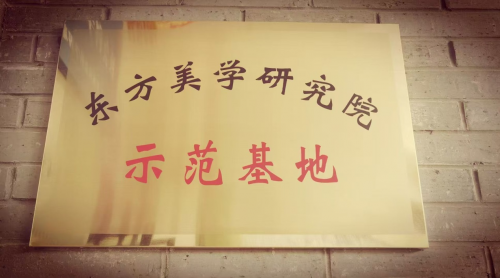 东方美学研究院
示范基地